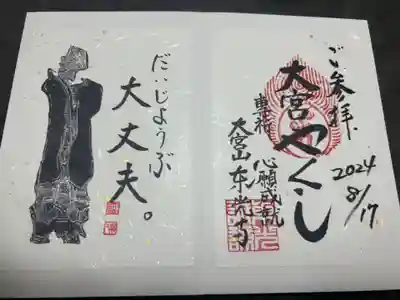 ご参拝
2024
8/17
大宮やくし
心願成就
大宮山東光寺
だいじょうぶ
大丈夫。